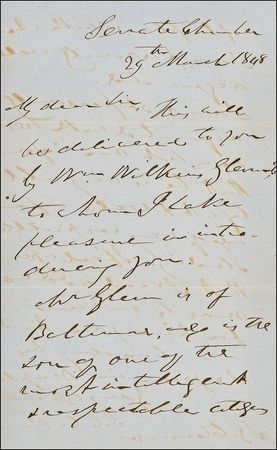 Senate Chamber
29th March 1848
My dear Sir, This will
be delivered to you
by Wm Wilkins Glenn
to whom I take
pleasure in intro-
ducing you.
Mr Glenn is of
Baltimore, & is the
son of one of the
most intelligent
& respectable